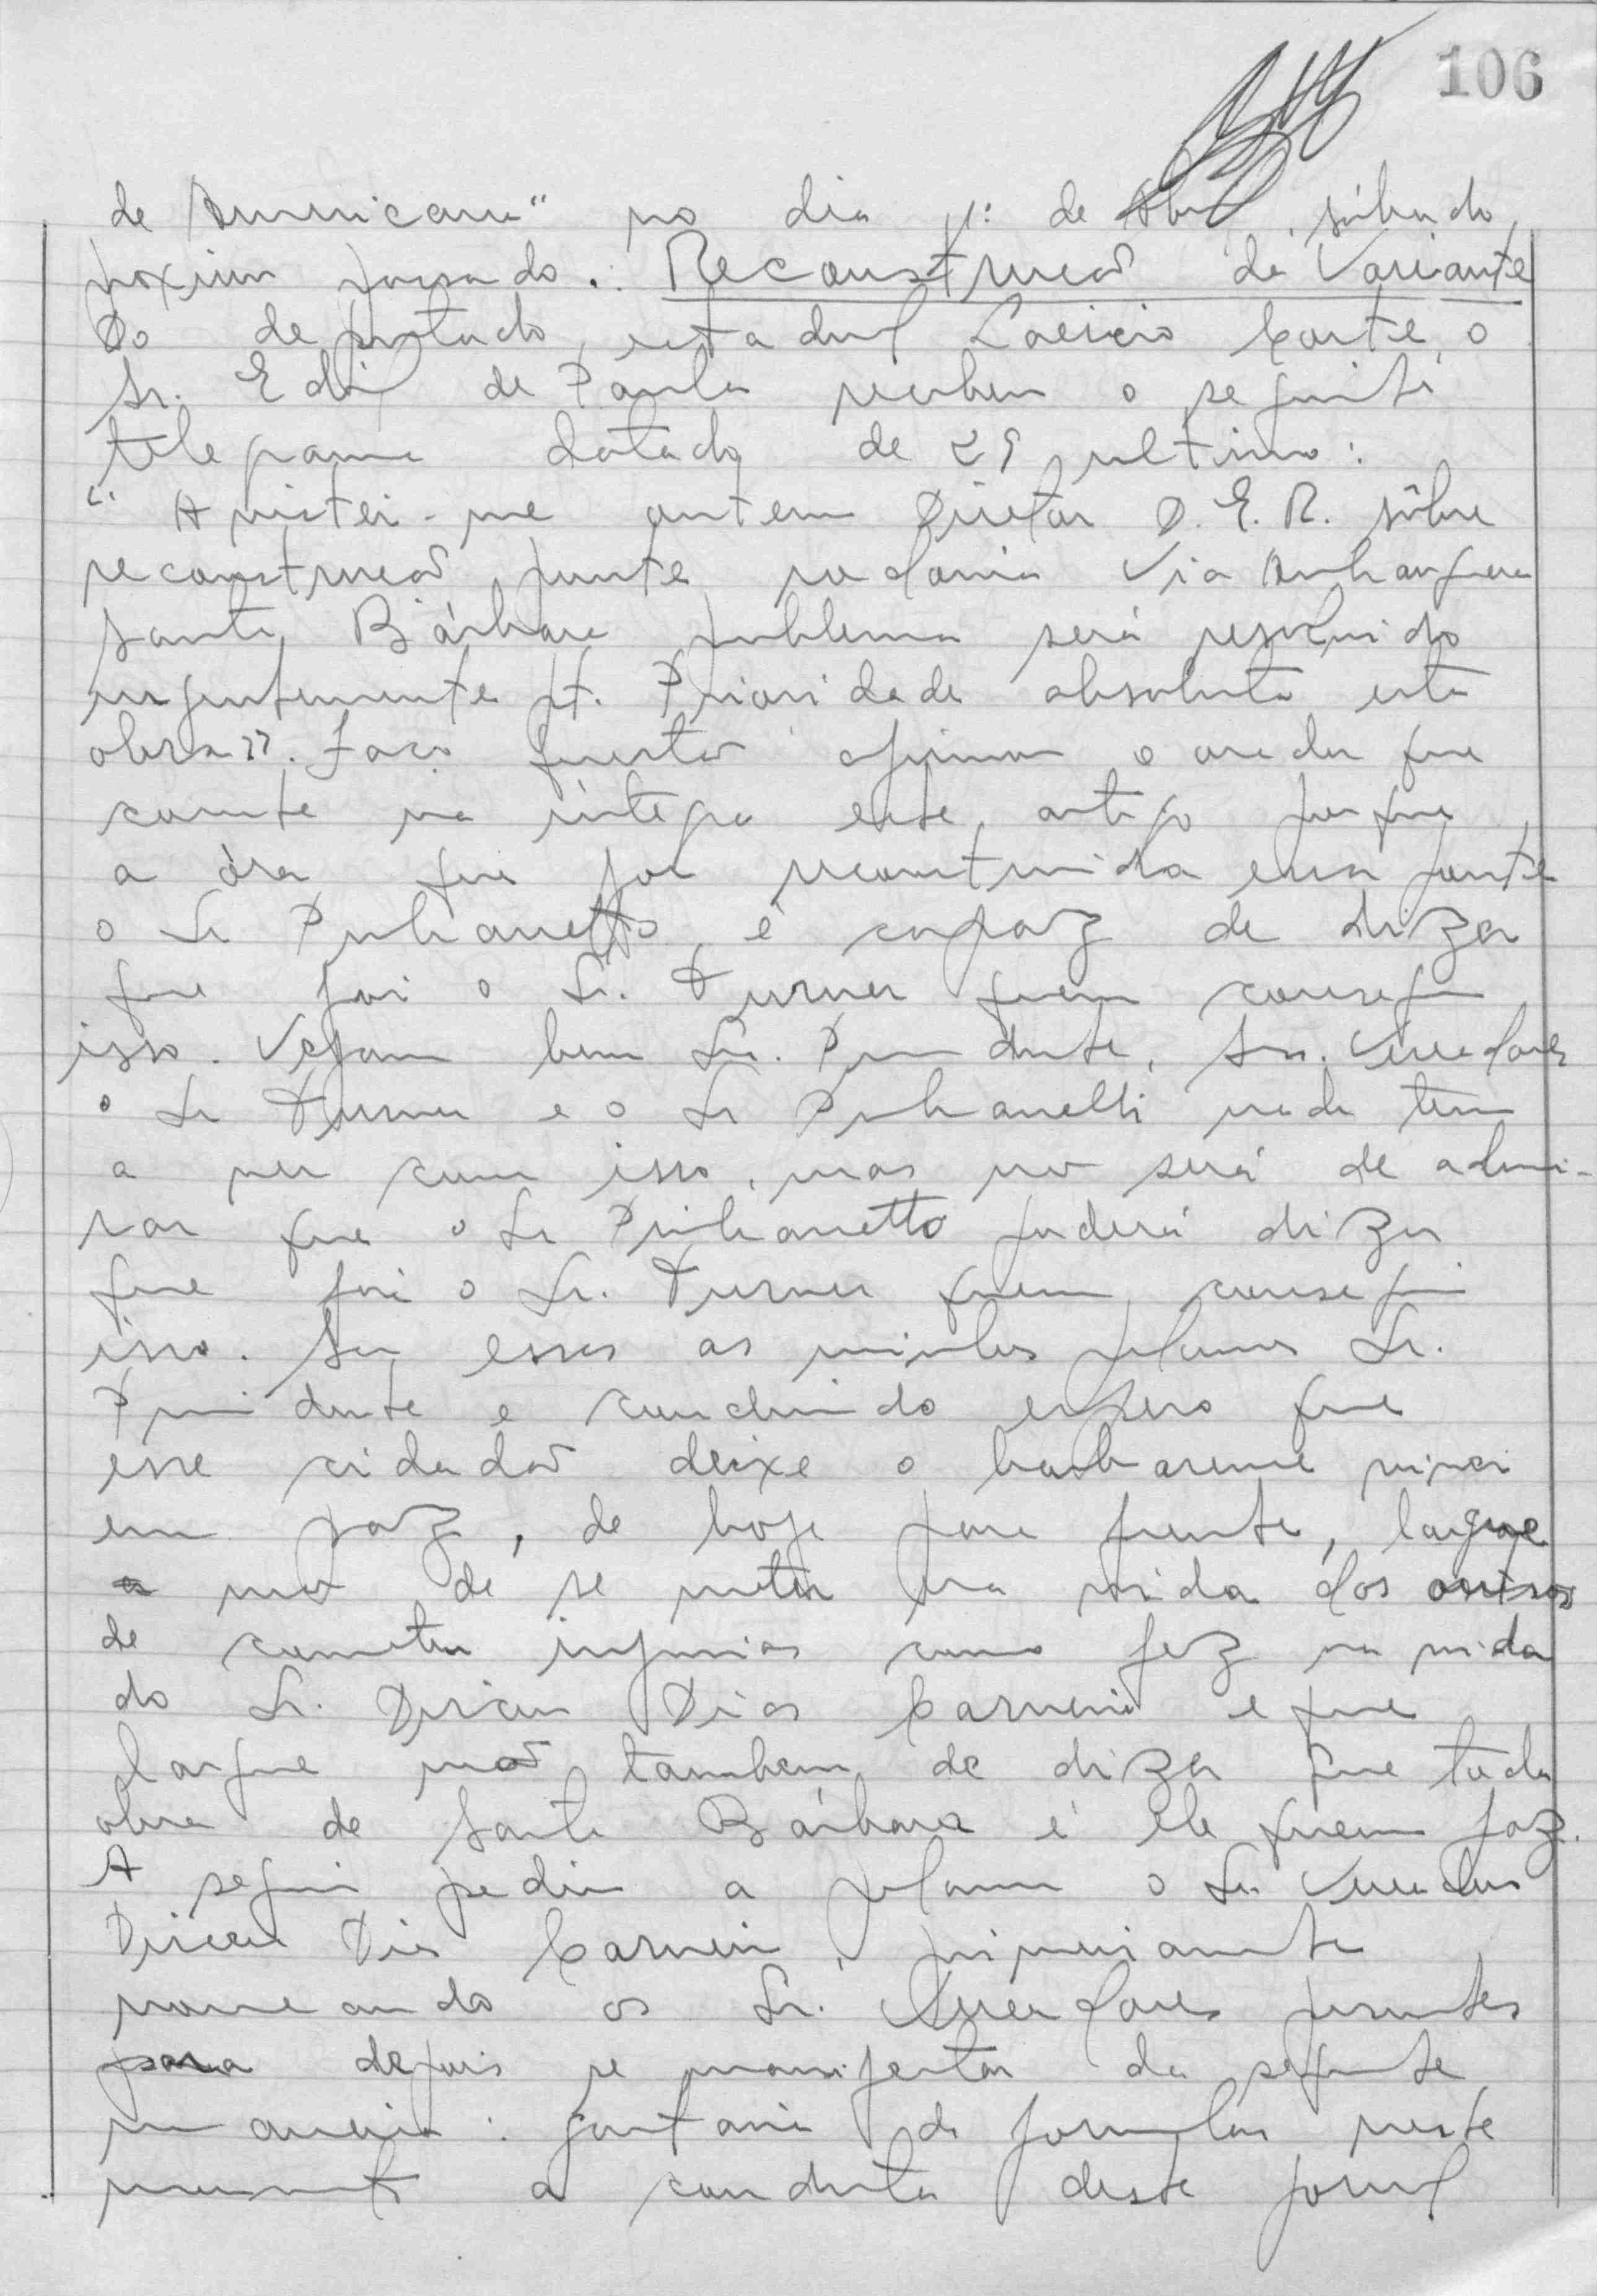 106
de Americana" no dia 1º de Abril, sábado
proximo passado. Reconstrução da Variante
Do deputado estadual Laercio Corte, o
Sr. Edil de Paula recebeu o seguinte
telegrama datado de 29 ultimo:
"Avistei-me ontem Diretor D.E.R. sôbre
reconstrução ponte rodovia Via Anhanguera
Santa Bárbara problema será resolvido
urgentemente pt. Prioridade absoluta esta
obra". Faço questão afirmou o orador que
conste na íntegra este artigo porque
a óra que for reconstruida essa ponte
o Sr é capaz de dizer
que foi o Sr. Turner quem consegui
isso. Vejam bem Sr. Presidente, Srs. Vereadores
o Sr Turner e o Sr nada tem
a ver com isso, mas não será de admi-
rar que o Sr poderá dizer
que foi o Sr. Turner quem consegui
isso. São essas as minhas palavras Sr.
Presidente e concluindo espero que
esse cidadão deixe o barbarense viver
em paz, de hoje para frente, largue
mão de se meter na vida dos outros
de cometer injurias como fez na vida
do Sr. Dirceu Dias Carneiro e que
largue mão tambem de dizer que toda
obra de Santa Bárbara é ele quem faz.
A seguir pediu a palavra o Sr Vereador
Dirceu Dias Carneiro, primeiramente
nomeando os Sr. Vereadores presentes
para depois se manifestar da seguinte
maneira: gostaria de formular neste
momento a conduta deste jornal